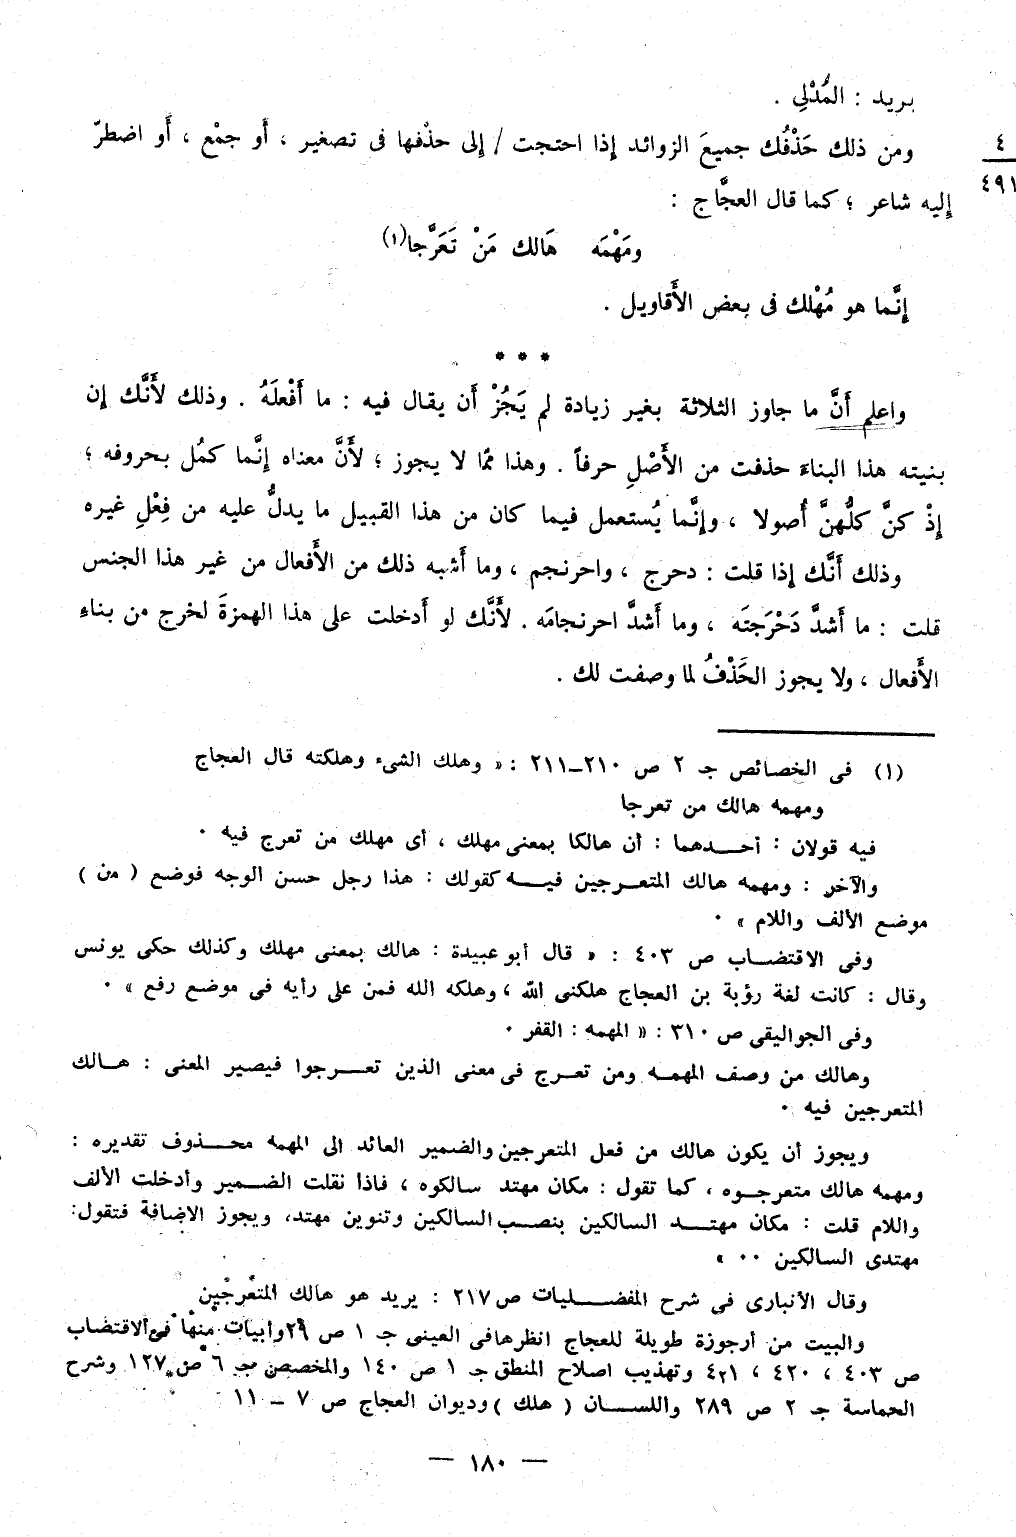 يريد : المُدْلِي .
ومن ذلك حَذْفُك جميعَ الزوائد إذا احتجت / إلى حذْفها فى تصغير ، أَو جمْع ، أَو اضطرّ
٤
٤٩١
إليه شاعر ؛ كما قال العجَّاج :
ومَهْمَه هَالك مَنْ تَعَرَّجا(١)
إنَّما هو مُهْلك فى بعض الأَقاويل .
* * *
واعلم أَنَّ ما جاوز الثلاثة بغير زيادة لم يَجُزْ أَن يقال فيه : ما أَفْعلَهُ . وذلك لأَنَّك إن
بنيته هذا البناءَ حذفت من الأَصْلِ حرفاً . وهذا ممّا لا يجوز ؛ لأَنَّ معناه إنَّما كمُل بحروفه ؛
إذْ كنَّ كلُّهنَّ أُصولا ، وإنَّما يُستعمل فيما كان من هذا القبيل ما يدلُّ عليه من فِعْلِ غيره
وذلك أَنَّك إذا قلت : دحرج ، واحرنجم ، وما أَشبه ذلك من الأَفعال من غير هذا الجنس
قلت : ما أَشدَّ دَحْرَجتَه ، وما أَشدَّ احرنجامَه . لأَنَّك لو أَدخلت على هذا الهمزةَ لخرج من بناءِ
الأَفعال ، ولا يجوز الحَذْفُ لما وصفت لك .
(١) فى الخصائص جـ ٢ ص ٢١٠ـ٢١١ : « وهلك الشىء وهلكته قال العجاج
ومهمه هالك من تعرجا
فيه قولان : أحـــدهما : أن هالكا بمعنى مهلك ، أى مهلك من تعرج فيه ٠
والآخر : ومهمه هالك المتعـرجين فيـــه كقولك : هذا رجل حسن الوجه فوضع ( من )
موضع الألف واللام » ٠
وفى الاقتضــاب ص ٤٠٣ : « قال أبو عبيدة : هالك بمعنى مهلك وكذلك حكى يونس
وقال : كانت لغة رؤبة بن العجاج هلكنى الله ، وهلكه الله فمن على رأيه فى موضع رفع » ٠
وفى الجواليقى ص ٣١٠ : « المهمه : القفر ٠
وهالك من وصف المهمـه ومن تعـرج فى معنى الذين تعـــرجوا فيصير المعنى : هــالك
المتعرجين فيه ٠
ويجوز أن يكون هالك من فعل المتعرجين والضمير العائد الى المهمه محـــذوف تقديره :
ومهمه هالك متعرجـوه ، كما تقول : مكان مهتد سالكوه ، فاذا نقلت الضـمير وأدخلت الألف
واللام قلت : مكان مهتــد السالكين بنصـب السالكين وتنوين مهتد، ويجوز الاضافة فتقول:
مهتدى السالكين ٠٠ »
وقال الأنبارى فى شرح المفضــليات ص ٢١٧ : يريد هو هالك المتعرجين
والبيت من أرجوزة طويلة للعجاج انظرها فى العينى جـ ١ ص ٢٩ وأبيات منها فى الاقتضاب
ص ٤٠٣ ، ٤٢٠ ، ٤٢١ وتهذيب اصلاح المنطق جـ ١ ص ١٤٠ والمخصص جـ ٦ ص ١٢٧ وشرح
الحماسة جـ ٢ ص ٢٨٩ واللســان ( هلك ) وديوان العجاج ص ٧ ـ ١١
— ١٨٠ —